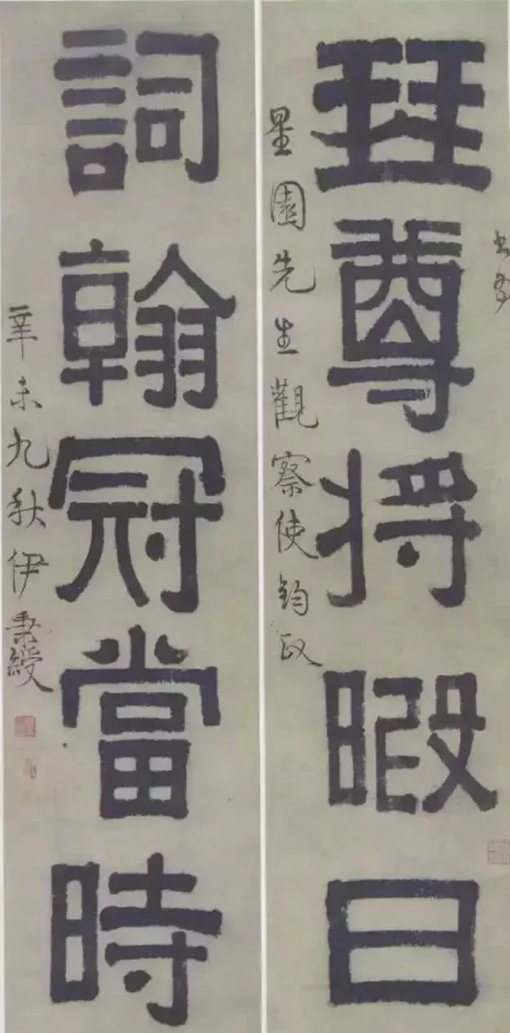 書為
琴尊將暇日
星園先生觀察使鈞政
詞翰冠當時
辛未九秋伊秉綬